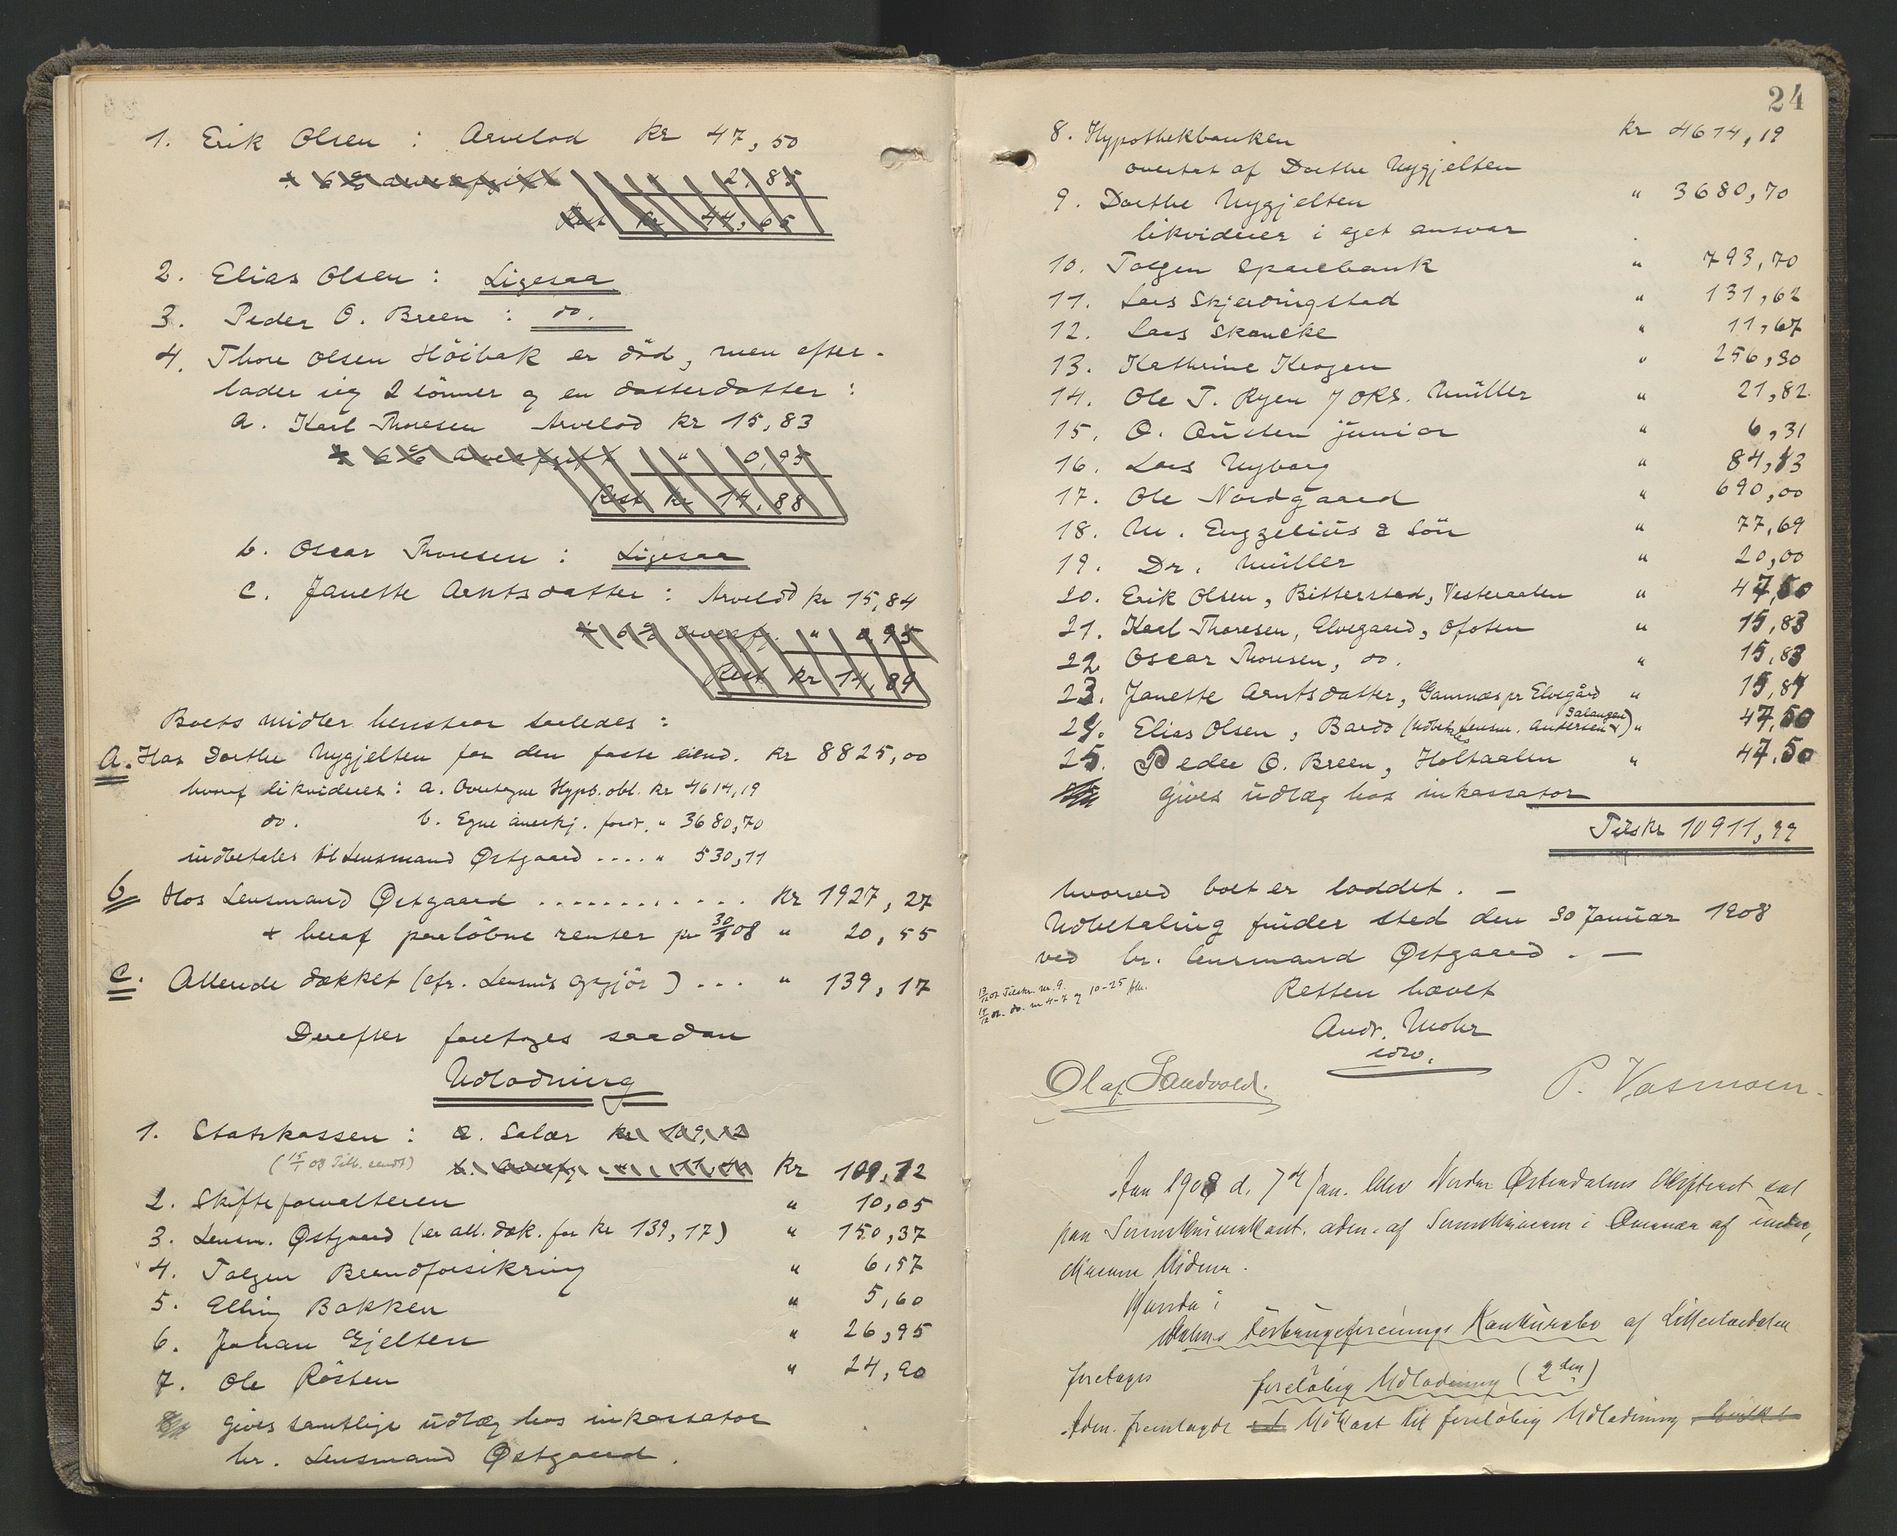 1. Erik Olsen : Arvelod kr 47,50
÷ 6% arveafgift " 2,85
Rest kr 44,65
2. Elias Olsen : Ligesaa
3. Peder O. Breen : do.
4. Thore Olsen Höibak er död, men efter-
lader sig 2 sönner og en datterdatter :
a. Karl Thoresen Arvelod kr 15,83
÷ 6% arveafgift " 0,95
Rest kr 14,88
b. Oscar Thoresen : Ligesaa
c. Janette Arntsdatter : Arvelod kr 15,84
÷ 6% arveaf. " 0,95
Rest kr 14,89
Boets midler henstaar saaledes :
A. Hos Dorthe Nygjelten for den faste eiend. kr 8825,00
hvoraf likvideres : a. Overtagne Hypb. obl. kr 4614,19
do. b. Egne anerkj. fordr. " 3680,70
indbetales til Lensmand Østgaard .... " 530,11
b Hos Lensmand Østgaard ............ kr 1927,27
+ heraf paaløbne renter pr 30/1 08 " 20,55
c. Allerede dækket (cfr. Lensm's opgjör) ... " 139,17
Derefter foretoges saadan
Udlodning
1. Statskassen : a. Salær kr 109,12
(15/1 08 Tilb. sendt) kr 109,12
2. Skifteforvalteren " 10,05
3. Lensm. Østgaard (er all. dæk. for kr 139,17) " 150,37
4. Tolgen Brandforsikring " 6,57
5. Elling Bakken " 5,60
6. Johan Gjelten " 26,95
7. Ole Røsten " 24,90
gives samtlige udlæg hos inkassator
hr. Lensmand Østgaard.
24
8. Hypothekbanken kr 4614,19
overtat af Dorthe Nygjelten
9. Dorthe Nygjelten " 3680,70
likviderer i eget ansvar
10. Tolgen Sparebank " 793,70
11. Lars Skjerdingstad " 131,62
12. Lars Skancke " 11,67
13. Kathrine Krogen " 256,30
14. Ole T. Ryen / ORS. Müller " 21,82
15. O. Austen junior " 6,31
16. Lars Nyborg " 84,13
17. Ole Nordgaard " 690,00
18. M. Engzelius & Sön " 77,69
19. Dr. Müller " 20,00
20. Erik Olsen, Bitterstad, Vesteraalen " 47,50
21. Karl Thoresen, Elvegaard, Ofoten " 15,83
22. Oscar Thoresen, do. " 15,83
23. Janette Arntsdatter, Gamnæs pr Elvegård " 15,84
24. Elias Olsen, Bardo (Udbet. Lensm. Andersen Salangen) " 47,50
25. Peder O. Breen, Holtaalen " 47,50
gives udlæg hos inkassator
Tils kr 10911,99
hvorved boet er loddet. –
Udbetaling finder sted den 30 Januar 1908
ved hr. Lensmand Østgaard. –
19/12 07 Tilskr. nr. 9.
19/12 07. do. nr 4-7 og 10-25 ftl.
Retten hævet
Andr. Mohr
edv.
Olaf Sandvold. P. Vasmoen.
Aar 1908 d. 7de Jan. blev Nordre Østerdalens Skifteret sat
paa Sorenskriverkont. adm. af Sorenskriveren i Overvær af under-
skrevne Vidner.
Hvorda :
Forbrugsforenings Konkursbo af Lilleelvedalen
foretages foreløbig Udlodning (2den)
Adm. fremlagde Udkast til foreløbig Udlodning